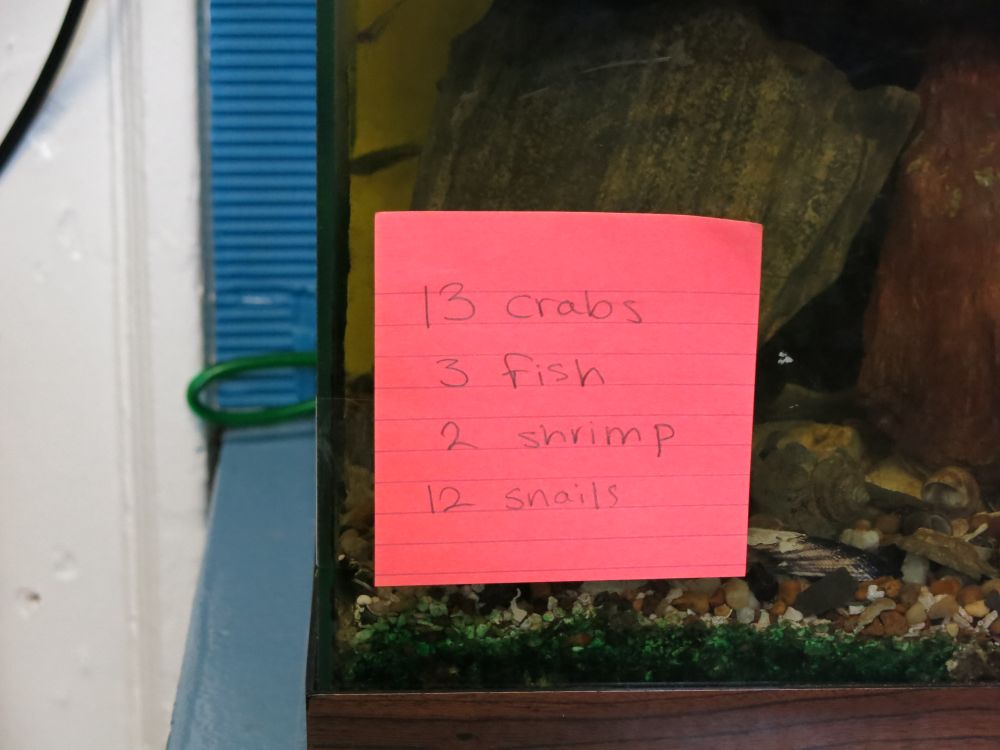 13 crabs
3 fish
2 shrimp
12 snails